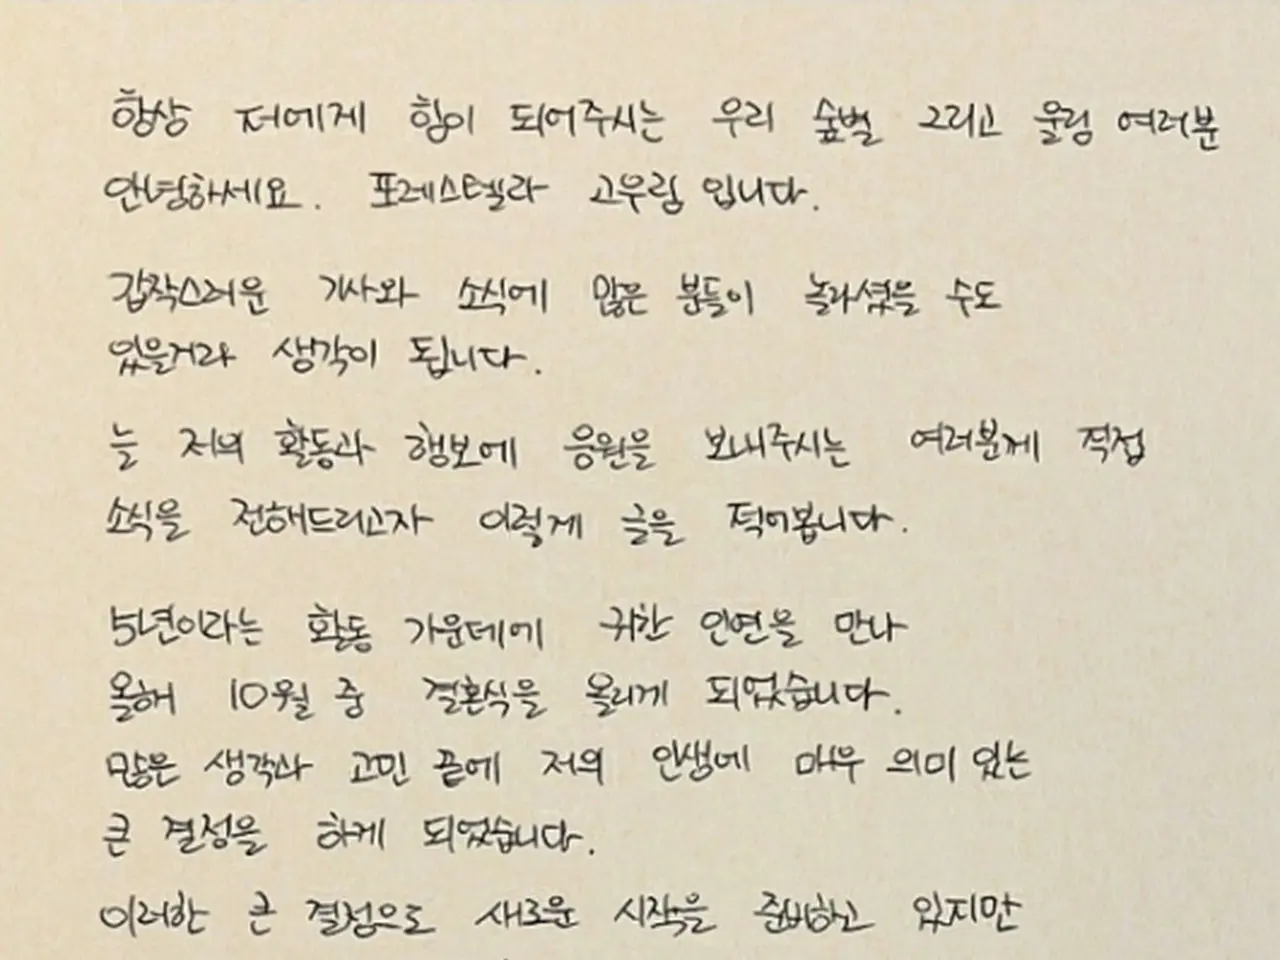 항상 저에게 힘이 되어주시는 우리 숲별 그리고 울림 여러분
안녕하세요. 포레스텔라 고우림 입니다.
갑작스러운 기사와 소식에 많은 분들이 놀라셨을 수도
있을거라 생각이 됩니다.
늘 저의 활동과 행보에 응원을 보내주시는 여러분께 직접
소식을 전해드리고자 이렇게 글을 적어봅니다.
5년이라는 활동 가운데에 귀한 인연을 만나
올해 10월 중 결혼식을 올리게 되었습니다.
많은 생각과 고민 끝에 저의 인생에 매우 의미 있는
큰 결정을 하게 되었습니다.
이러한 큰 결정으로 새로운 시작을 준비하고 있지만